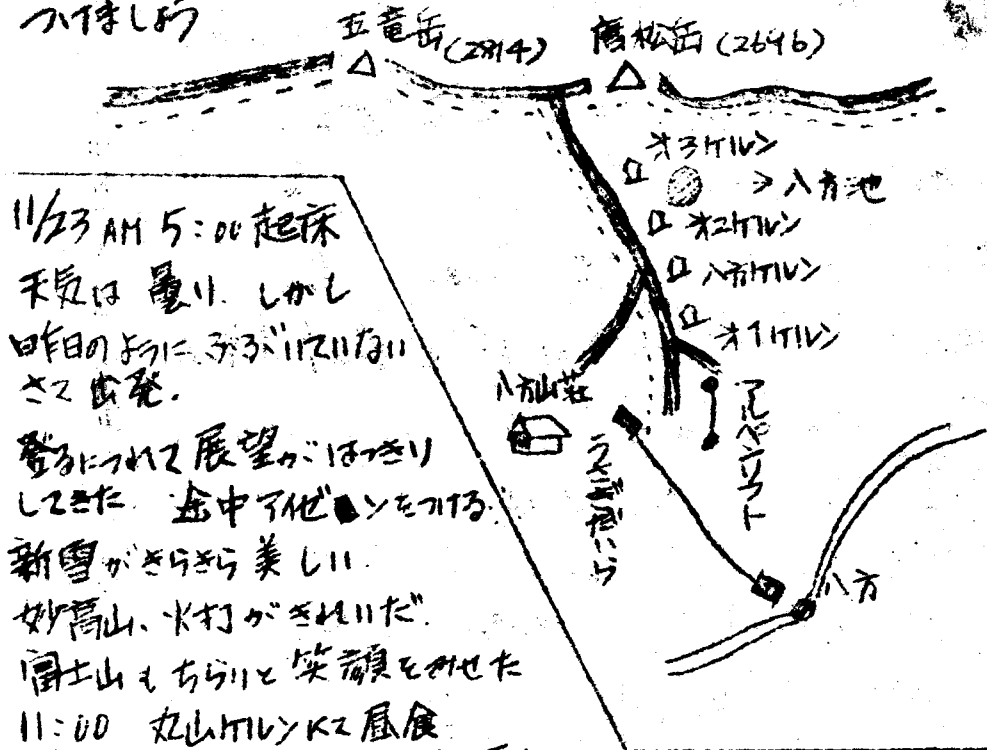 つけましょう
五竜岳(2814)
唐松岳(2696)
オ3ケルン
八方池
オ2ケルン
八方ケルン
オ1ケルン
八方山荘
うさぎだいら
アルペンリフト
八方
11/23 AM 5:00 起床
天気は 曇り、しかし
昨日のように ふぶいていない
さて 出発.
登るにつれて 展望が はっきり
してきた 途中アイゼンをつける.
新雪がきらきら美しい
妙高山、火打がきれいだ.
富士山もちらりと笑顔をみせた
11:00 丸山ケルンにて 昼食